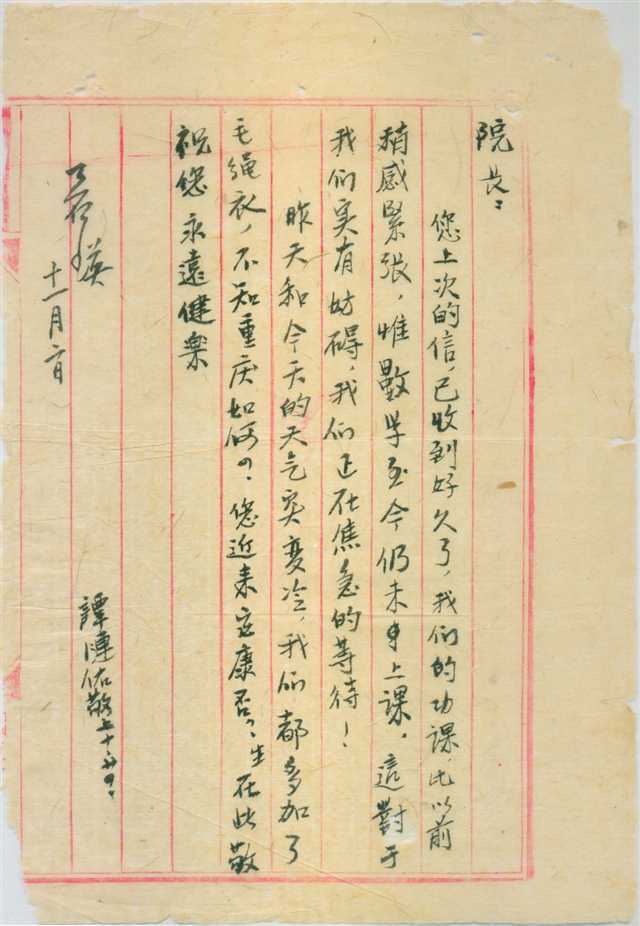 院長：
您上次的信，已收到好久了，我们的功課，比以前
稍感緊张，惟數学至今仍未上課。這對于
我们实有妨碍，我们正在焦急的等待！
昨天和今天的天气突变冷，我们都多加了
毛绳衣，不知重庆如何？您近来安康否？生在此敬
祝您永遠健樂
譚傳佑敬上
十一月六日